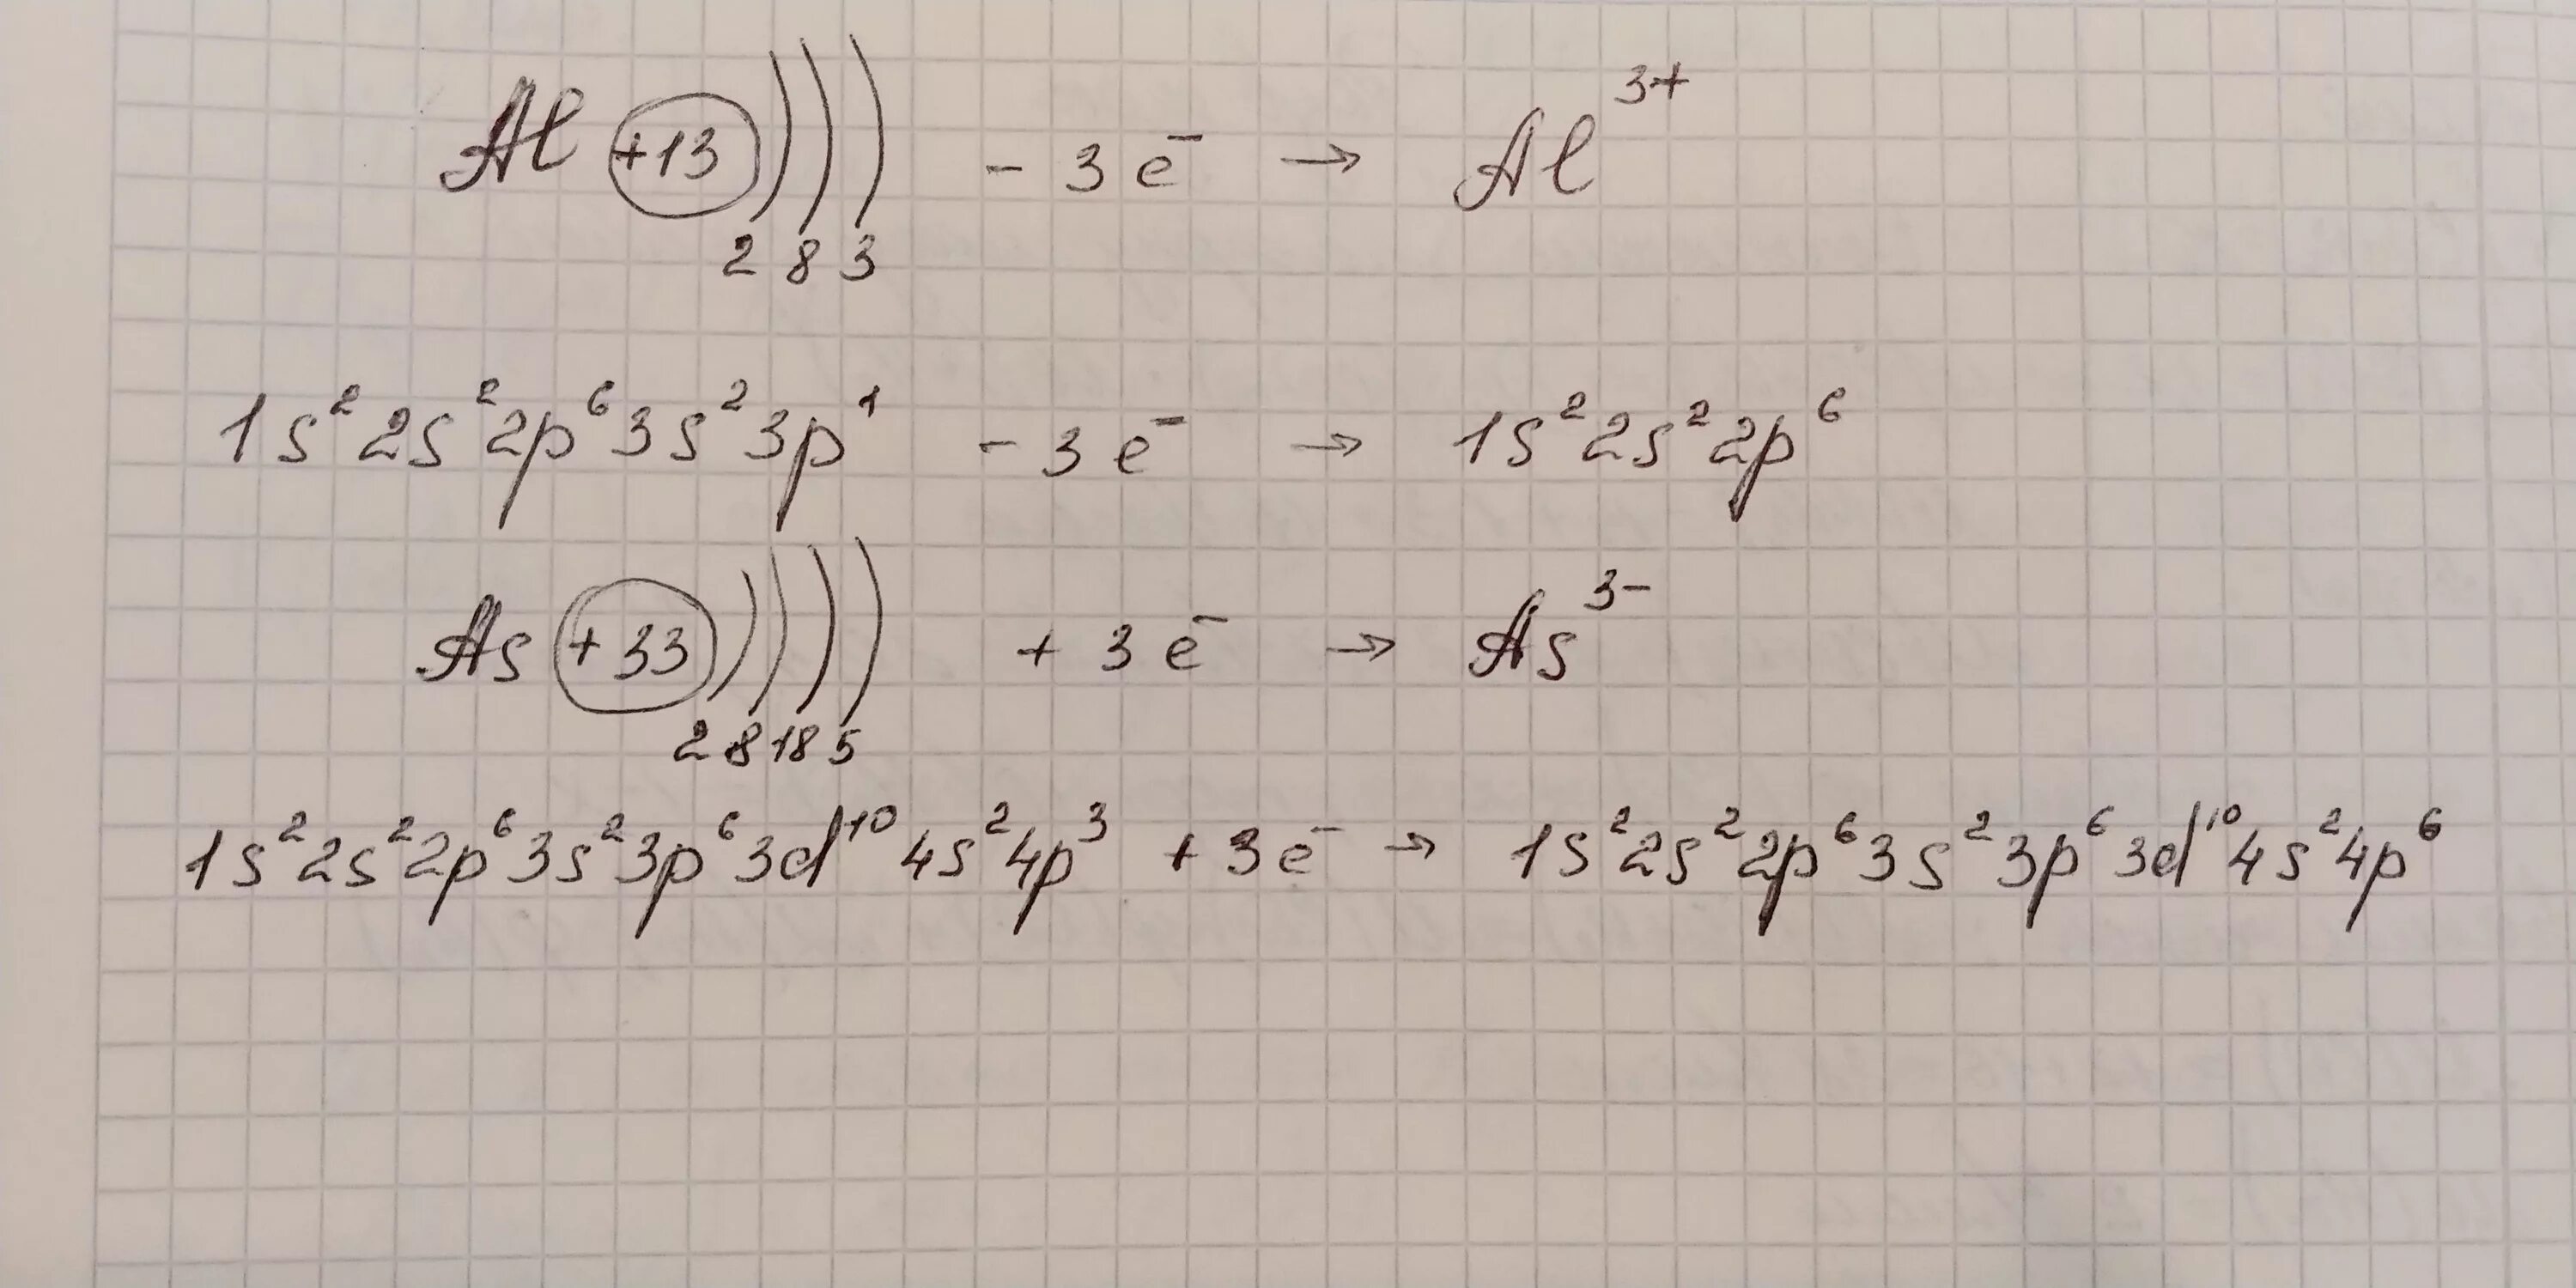 Al +13 ))) - 3e⁻ → Al³⁺
2 8 3
1s² 2s² 2p⁶ 3s² 3p¹ - 3e⁻ → 1s² 2s² 2p⁶
As +33 )))) + 3e⁻ → As³⁻
2 8 18 5
1s² 2s² 2p⁶ 3s² 3p⁶ 3d¹⁰ 4s² 4p³ + 3e⁻ → 1s² 2s² 2p⁶ 3s² 3p⁶ 3d¹⁰ 4s² 4p⁶